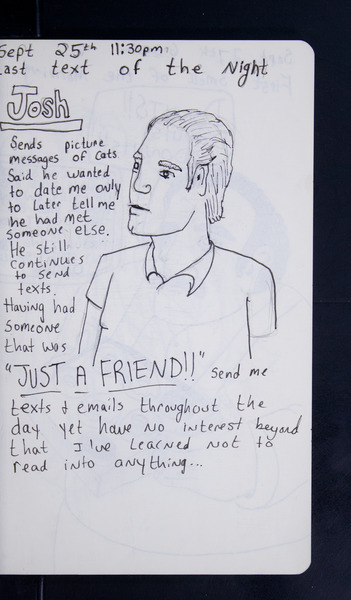 Sept 25th 11:30pm
Last text of the Night
Josh
Sends picture
messages of cats
Said he wanted
to date me only
to Later tell me
he had met
someone else.
He still
continues
to send
texts.
Having had
someone
that was
"JUST A FRIEND!!" send me
texts & emails throughout the
day yet have no interest beyond
that I've Learned not to
read into anything...